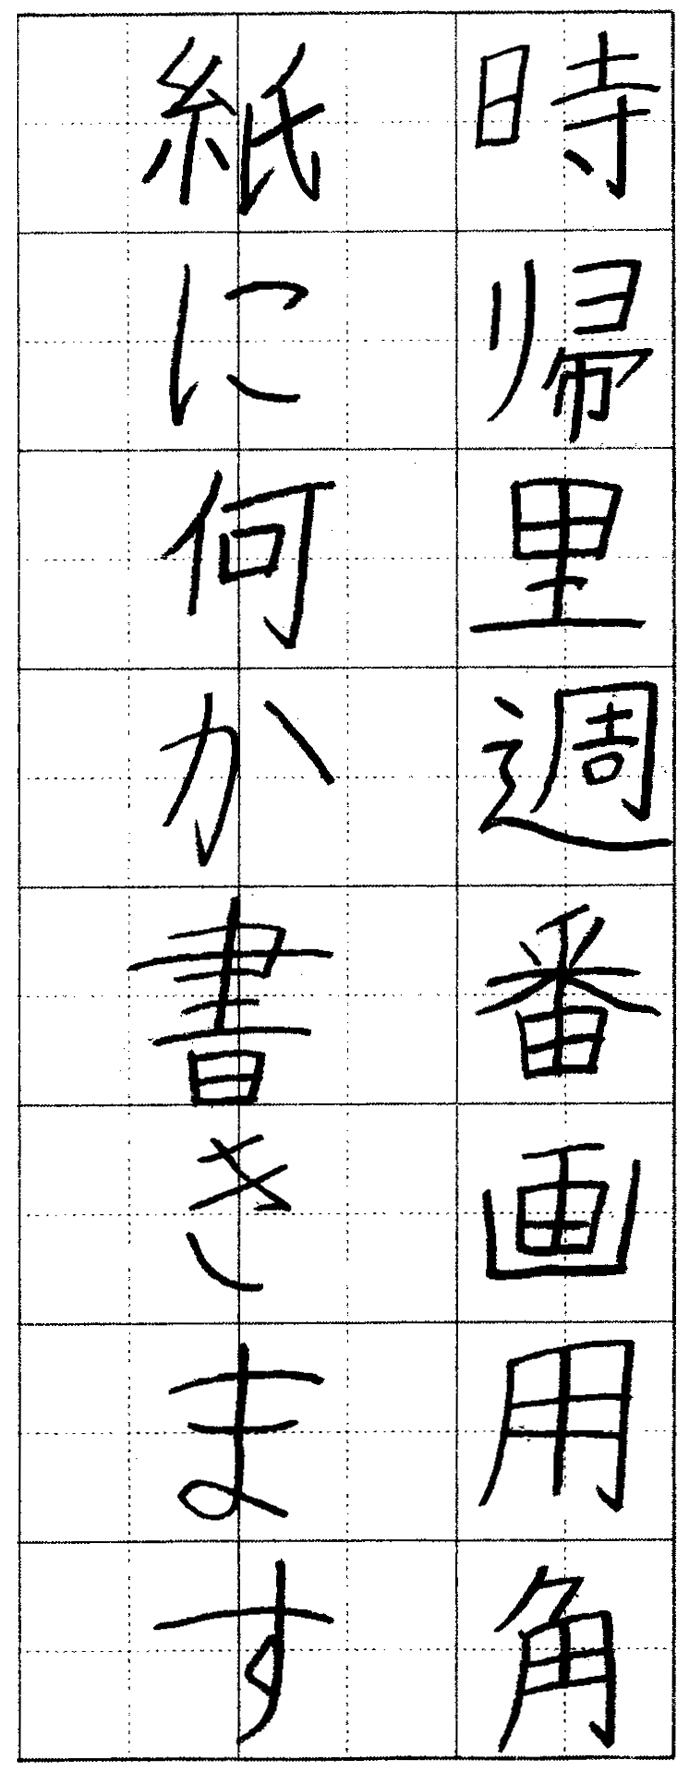 時帰里週番画用角
紙に何か書きます